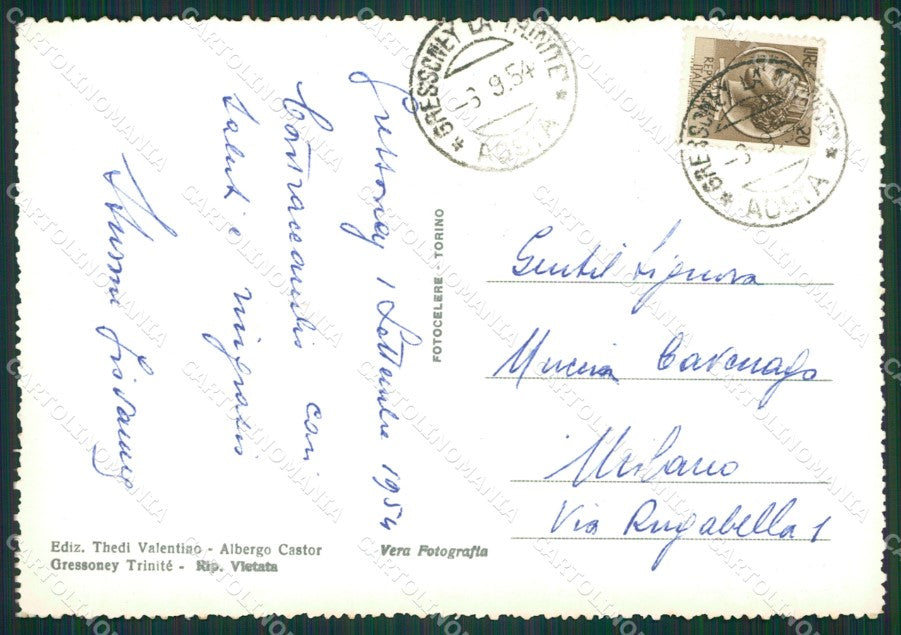 Gressonay 1 Settembre 1954
Contraccambio cari
saluti e
GRESSONEY LA TRINITE' AOSTA
-6 9.54
GRESSONEY LA TRINITE' AOSTA
REPUBBLICA ITALIANA
LIRE 20
FOTOCELERE - TORINO
Gentil Signora
Cavenago
Milano
Via Rugabella 1
Ediz. Thedi Valentino - Albergo Castor
Gressoney Trinité - Rip. Vietata
Vera Fotografia
CARTOLINOMANIA